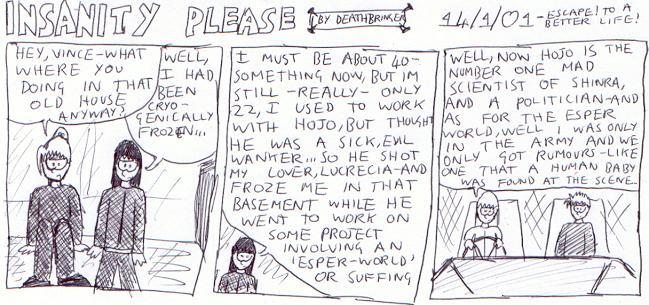 INSANITY PLEASE
BY DEATHBRINGER
14/1/01-ESCAPE! TO A
BETTER LIFE!
HEY, VINCE-WHAT
WHERE YOU
DOING IN THAT
OLD HOUSE
ANYWAY?
WELL,
I HAD
BEEN
CRYO-
GENICALLY
FROZEN...
I MUST BE ABOUT 40-
SOMETHING NOW, BUT IM
STILL -REALLY- ONLY
22, I USED TO WORK
WITH HOJO, BUT THOUGHT
HE WAS A SICK, EVIL
WANKER... SO HE SHOT
MY LOVER, LUCRECIA-AND
FROZE ME IN THAT
BASEMENT WHILE HE
WENT TO WORK ON
SOME PROJECT
INVOLVING AN
'ESPER-WORLD'
OR SUFFING
WELL, NOW HOJO IS THE
NUMBER ONE MAD
SCIENTIST OF SHINRA,
AND A POLITICIAN-AND
AS FOR THE ESPER
WORLD, WELL I WAS ONLY
IN THE ARMY AND WE
ONLY GOT RUMOURS-LIKE
ONE THAT A HUMAN BABY
WAS FOUND AT THE SCENE..